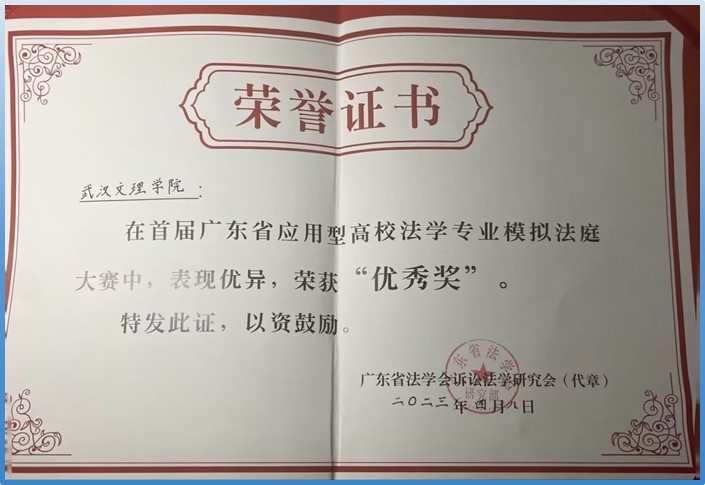 荣誉证书
武汉文理学院：
在首届广东省应用型高校法学专业模拟法庭
大赛中，表现优异，荣获“优秀奖”。
特发此证，以资鼓励。
广东省法学会诉讼法学研究会（代章）
二〇二三年四月八日
东省法学会
研究部